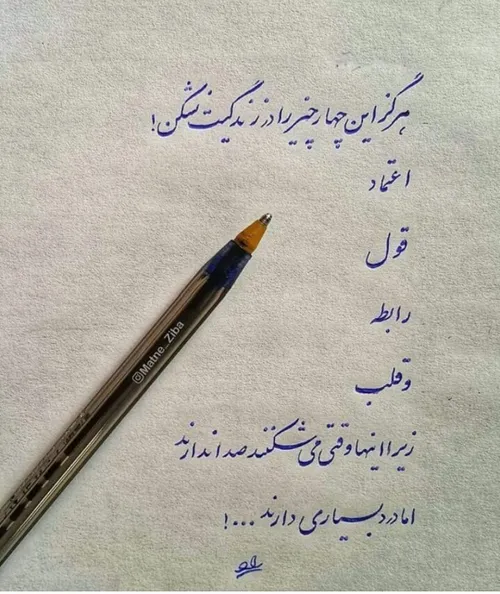 هرگز این چهار چیز را در زندگیت نشکن!
اعتماد
قول
رابطه
و قلب
زیرا اینها وقتی می‌شکنند صدا ندارند
اما درد بسیاری دارند ...!
@Matne_Ziba